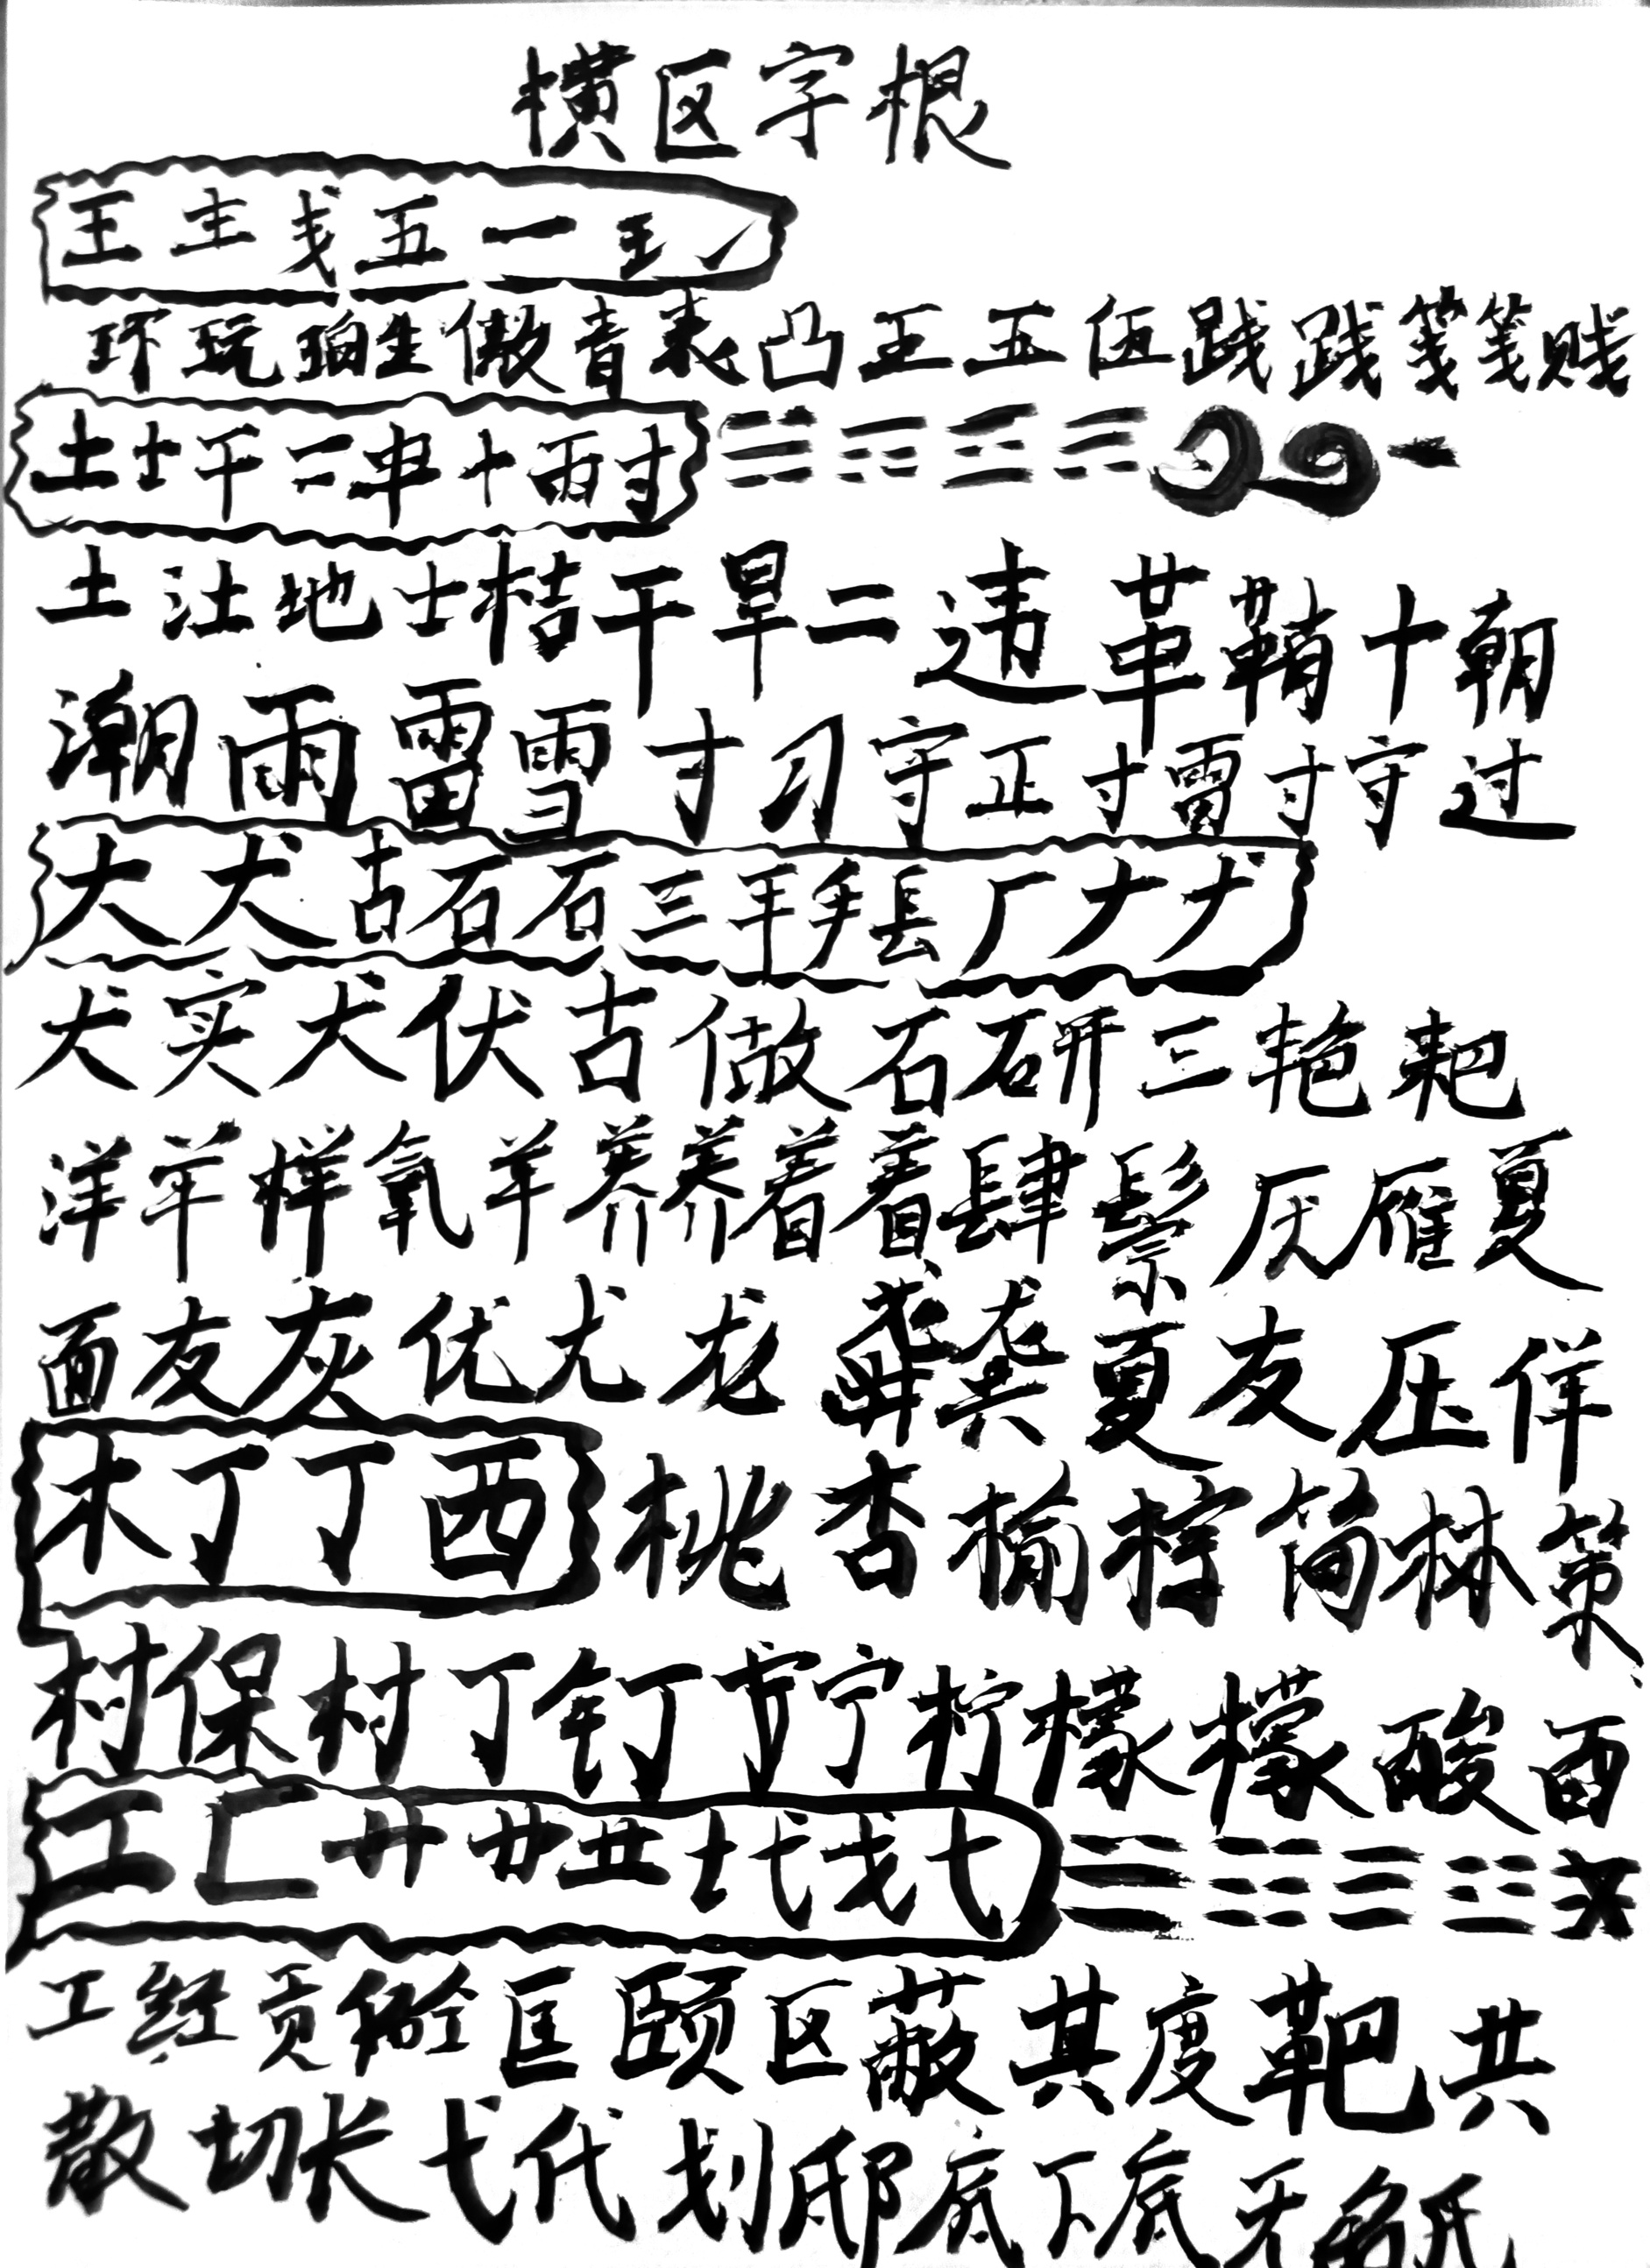 横区字根
王主戋五一王
环玩珀生傲青表凸王五伍践践笺笺贱
土士干二十雨寸
土汢地士桔干旱二违革鞘十朝
潮雨雷雪寸刁守正寸雷寸守过
大犬古石石三手厂ナ
犬实犬伏古做石研三艳耙
洋羊样氧羊养养着着肆鬃厌雁夏
面友灰优尤龙龚夏友压佯
木丁丁西桃杏榆棕简林策
村保村丁钉宁柠檬檬酸西
工匚廾廿七弋戈七
工经贡匡颐区蔽其度靶共
散切长弋代划邸底下底无氏